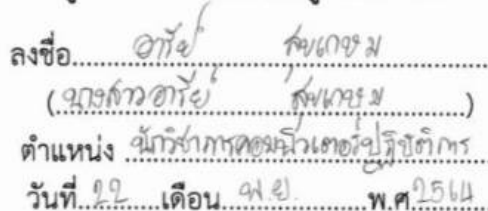 ลงชื่อ อารีย์ สุขเกษม
(นางสาวอารีย์ สุขเกษม)
ตำแหน่ง นักวิชาการคอมพิวเตอร์ปฏิบัติการ
วันที่ 22 เดือน พ.ย. พ.ศ 2564